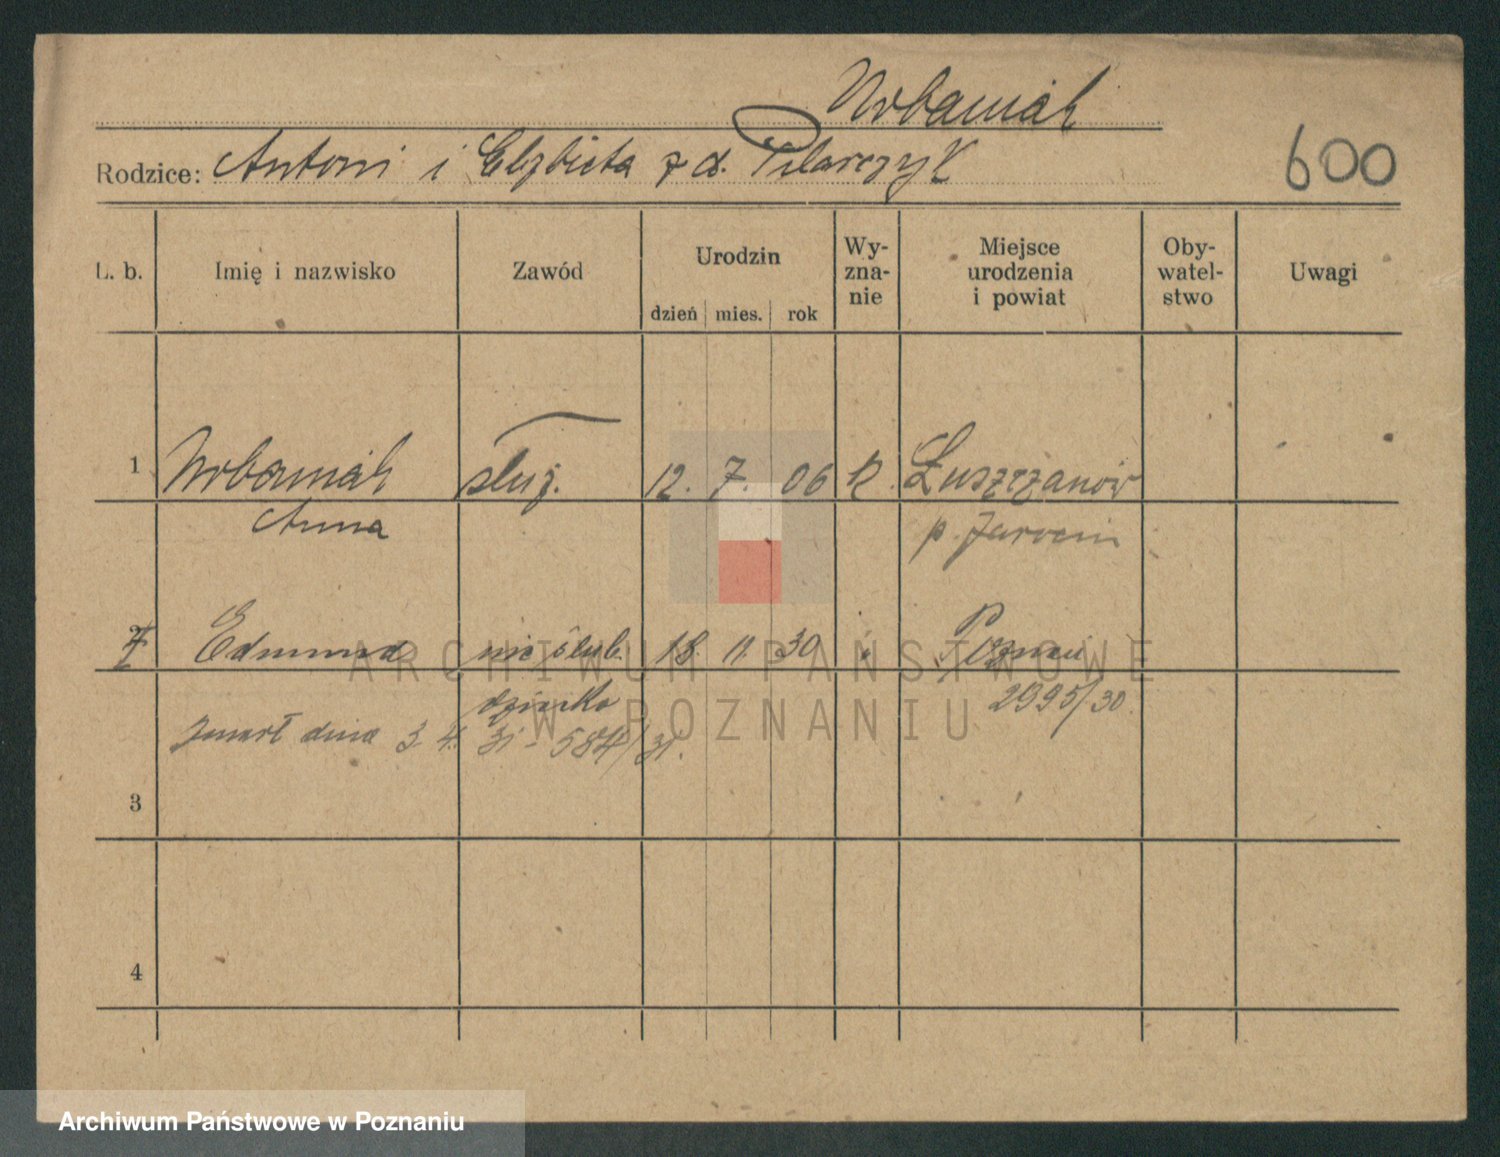 Urbaniak
Rodzice: Antoni i Elżbieta z d. Pilarczyk
600
L. b. Imię i nazwisko Zawód Urodzin dzień mies. rok Wy-zna-nie Miejsce urodzenia i powiat Oby-watel-stwo Uwagi
1 Urbaniak służ. 12. 7. 06 k. Łuszczanów
Anna p. Jarocin
2 Edmund nieślub. 18. 11. 30 Poznań
dziecko 2995/30.
zmarł dnia 3. 4. 31 - 584/31.
3
4
ARCHIWUM PAŃSTWOWE
W POZNANIU
Archiwum Państwowe w Poznaniu